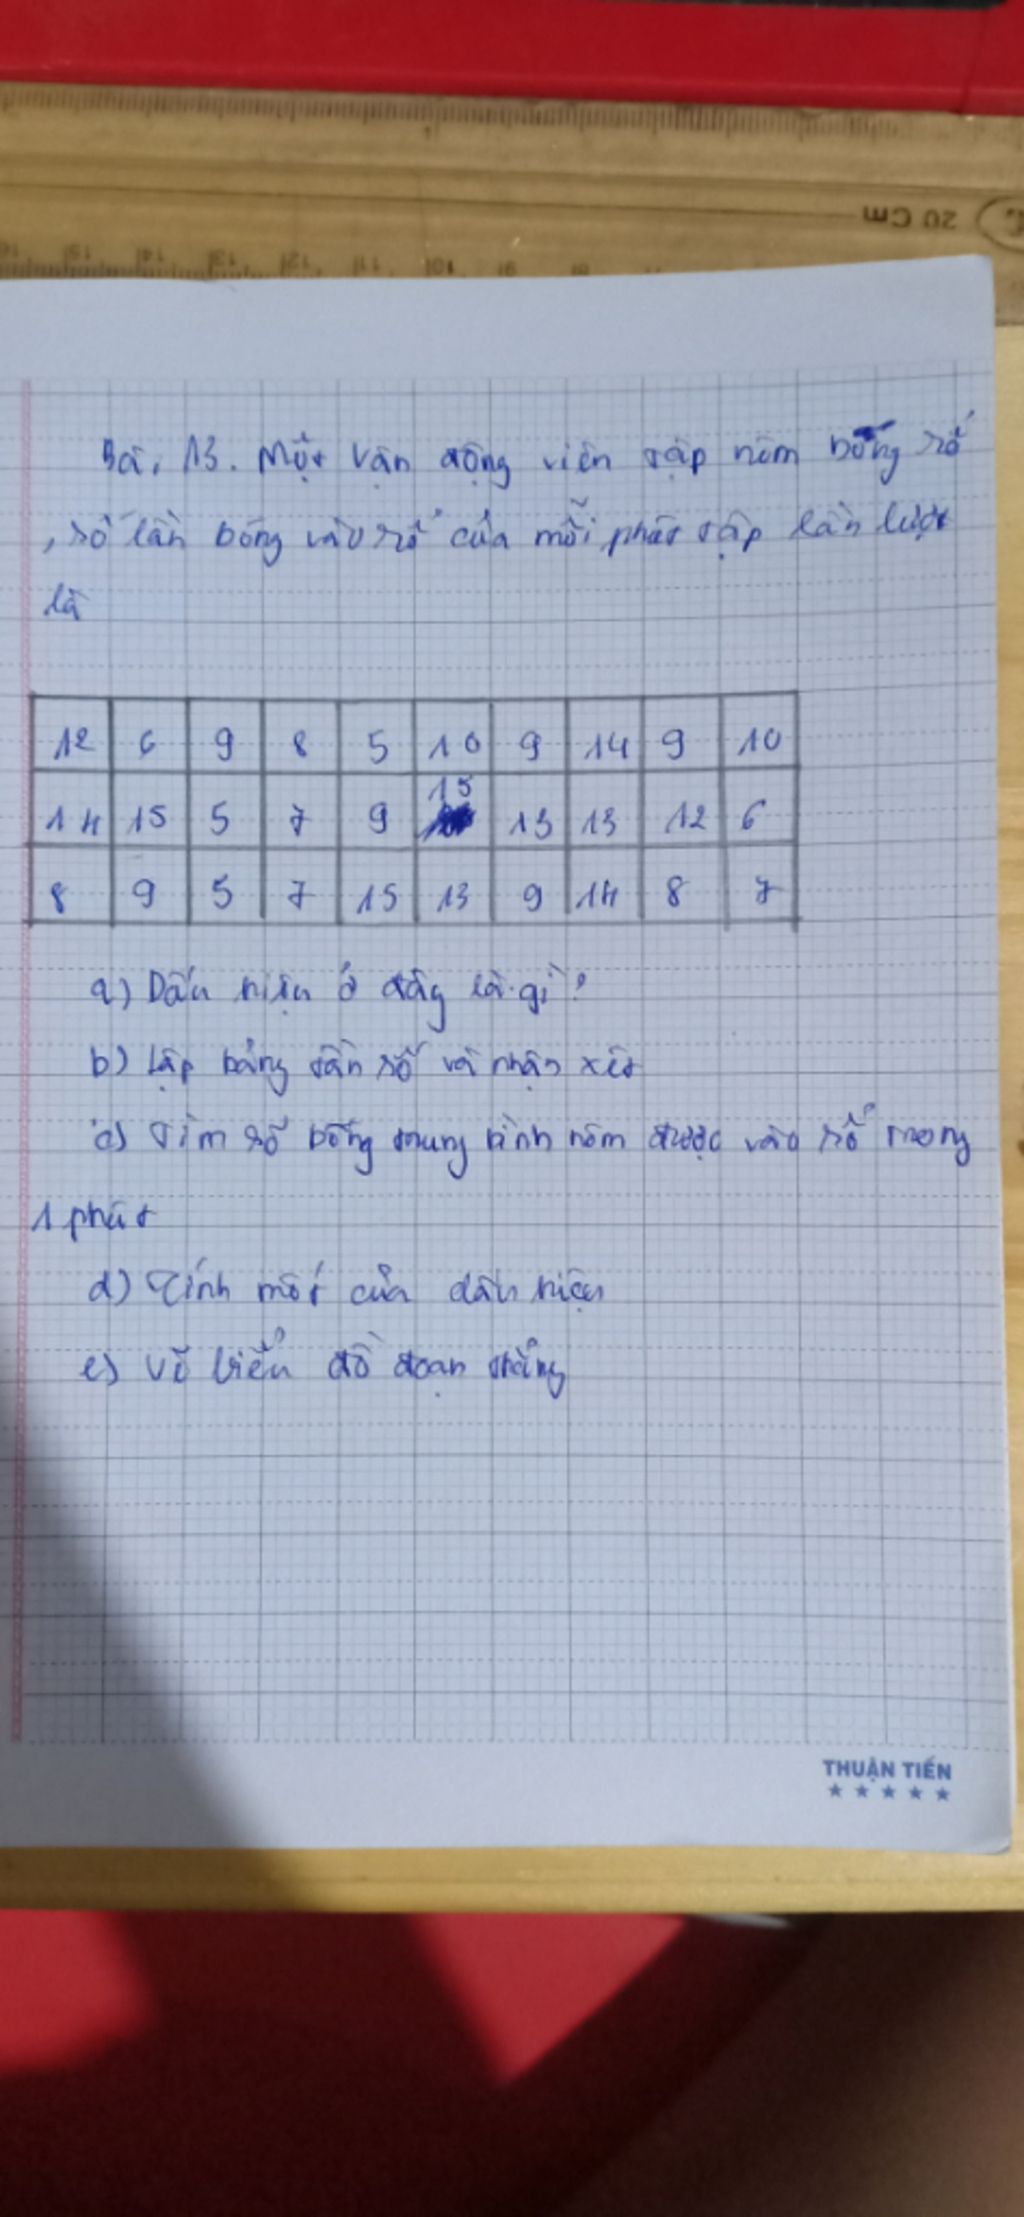 20 Cm
15 14 13 12 11 10 9 8
Bài 13. Một vận động viên tập ném bóng rổ
, số lần bóng vào rổ của mỗi phút tập lần lượt
là
12 6 9 8 5 10 9 14 9 10
14 15 5 7 9 15 13 13 12 6
8 9 5 7 15 13 9 14 8 7
a) Dấu hiệu ở đây là gì?
b) Lập bảng tần số và nhận xét
c) Tìm số bóng trung bình ném được vào rổ trong
1 phút
d) Tính mốt của dấu hiệu
e) Vẽ biểu đồ đoạn thẳng
THUẬN TIẾN